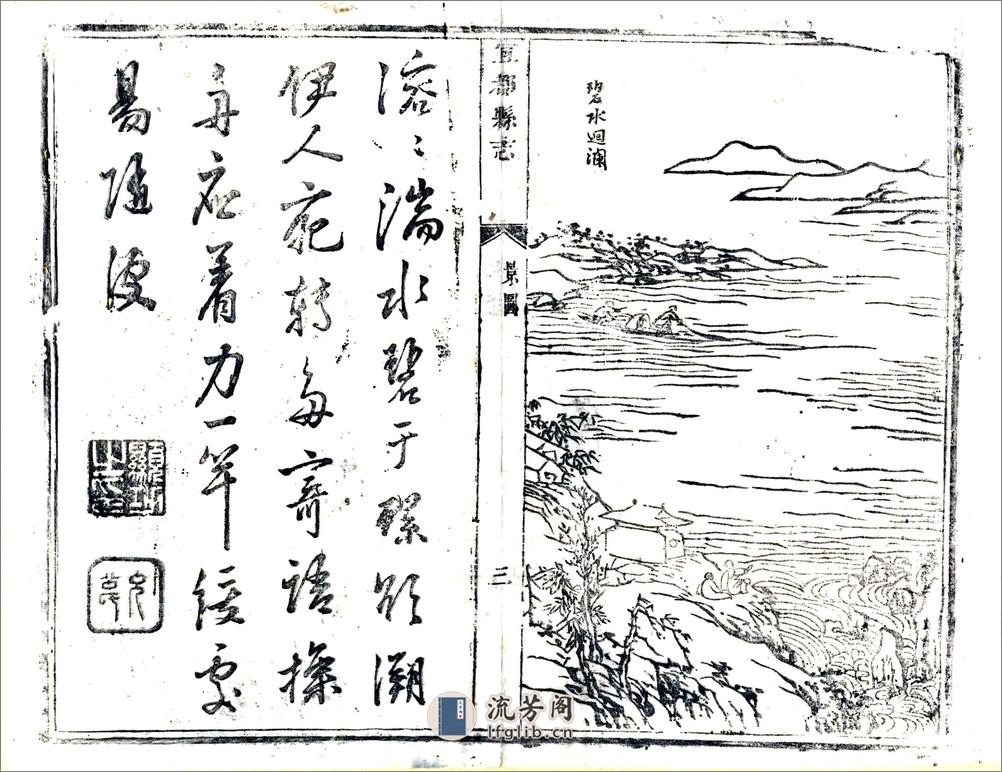 碧水迴瀾
宜都縣志
景圖
三
溶〻湍水碧于瑠欲溯
伊人宛轉多寄語操
舟應着力一竿緩處
易隨波
流芳阁
lfglib.cn